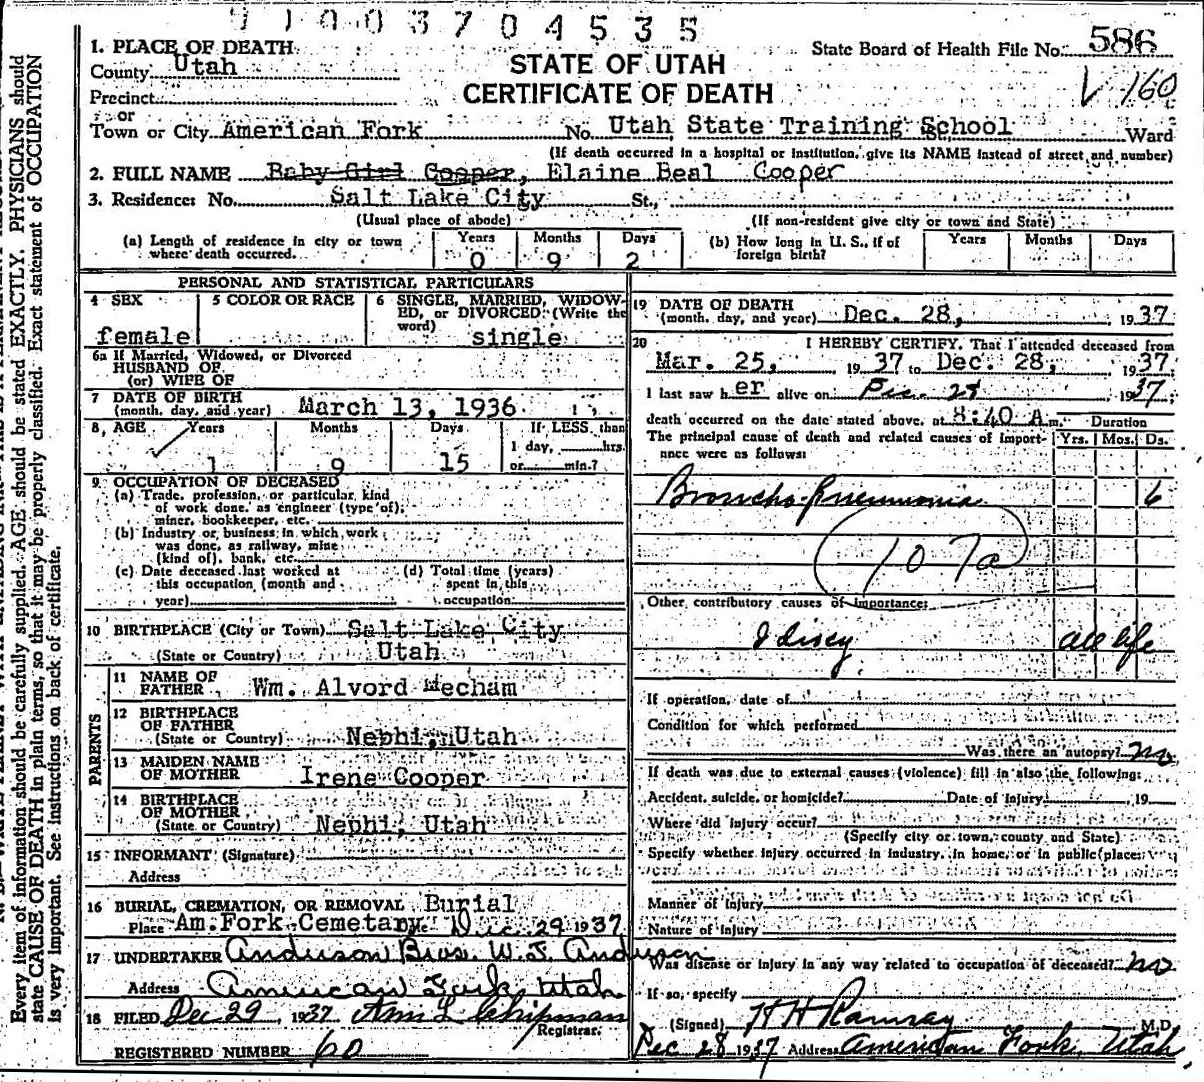 91003704535
State Board of Health File No. 586
V 160
STATE OF UTAH
CERTIFICATE OF DEATH
1. PLACE OF DEATH
County Utah
Precinct
or
Town or City American Fork No. Utah State Training School Ward
(If death occurred in a hospital or institution, give its NAME instead of street and number)
2. FULL NAME Baby Girl Cooper, Elaine Beal Cooper
3. Residence: No. Salt Lake City St.,
(Usual place of abode) (If non-resident give city or town and State)
(a) Length of residence in city or town where death occurred. Years 0 Months 9 Days 2
(b) How long in U. S., if of foreign birth? Years Months Days
PERSONAL AND STATISTICAL PARTICULARS
4 SEX female
5 COLOR OR RACE
6 SINGLE, MARRIED, WIDOWED, or DIVORCED (Write the word) single
6a If Married, Widowed, or Divorced
HUSBAND OF
(or) WIFE OF
7 DATE OF BIRTH
(month, day, and year) March 13, 1936
8, AGE Years 1 Months 9 Days 15 If LESS than
1 day, hrs.
or min.?
9. OCCUPATION OF DECEASED
(a) Trade, profession, or particular kind
of work done, as engineer (type of);
miner, bookkeeper, etc.
(b) Industry or business in which work
was done, as railway, mine
(kind of), bank, etc.
(c) Date deceased last worked at
this occupation (month and
year)
(d) Total time (years)
spent in this
occupation
10 BIRTHPLACE (City or Town) Salt Lake City
(State or Country) Utah
PARENTS
11 NAME OF
FATHER Wm. Alvord Mecham
12 BIRTHPLACE
OF FATHER
(State or Country) Nephi, Utah
13 MAIDEN NAME
OF MOTHER Irene Cooper
14 BIRTHPLACE
OF MOTHER
(State or Country) Nephi, Utah
15 INFORMANT (Signature)
Address
16 BURIAL, CREMATION, OR REMOVAL Burial
Place Am. Fork Cemetary Date Dec. 29 1937
17 UNDERTAKER Anderson Bros. W. J. Anderson
Address American Fork, Utah
18 FILED Dec 29, 1937 Chipman
Registrar.
REGISTERED NUMBER 60
19 DATE OF DEATH
(month, day, and year) Dec. 28, 1937
20 I HEREBY CERTIFY, That I attended deceased from
Mar. 25, 1937 to Dec. 28, 1937
I last saw her alive on Dec. 28 1937,
death occurred on the date stated above, at 8:40 A m.
Duration
The principal cause of death and related causes of importance were as follows: Yrs. Mos. Ds.
Broncho-Pneumonia 6
107a
Other contributory causes of importance:
Idiocy all life
If operation, date of
Condition for which performed
Was there an autopsy? no
If death was due to external causes (violence) fill in also the following:
Accident, suicide, or homicide? Date of injury , 19
Where did injury occur?
(Specify city or town, county and State)
Specify whether injury occurred in industry, in home, or in public place:
Manner of injury
Nature of injury
Was disease or injury in any way related to occupation of deceased? no
If so, specify
(Signed) H H Ramsay M.D.
Dec 28 1937 Address American Fork, Utah
Every item of information should be carefully supplied. AGE should be stated EXACTLY. PHYSICIANS should
state CAUSE OF DEATH in plain terms, so that it may be properly classified. Exact statement of OCCUPATION
is very important. See instructions on back of certificate.